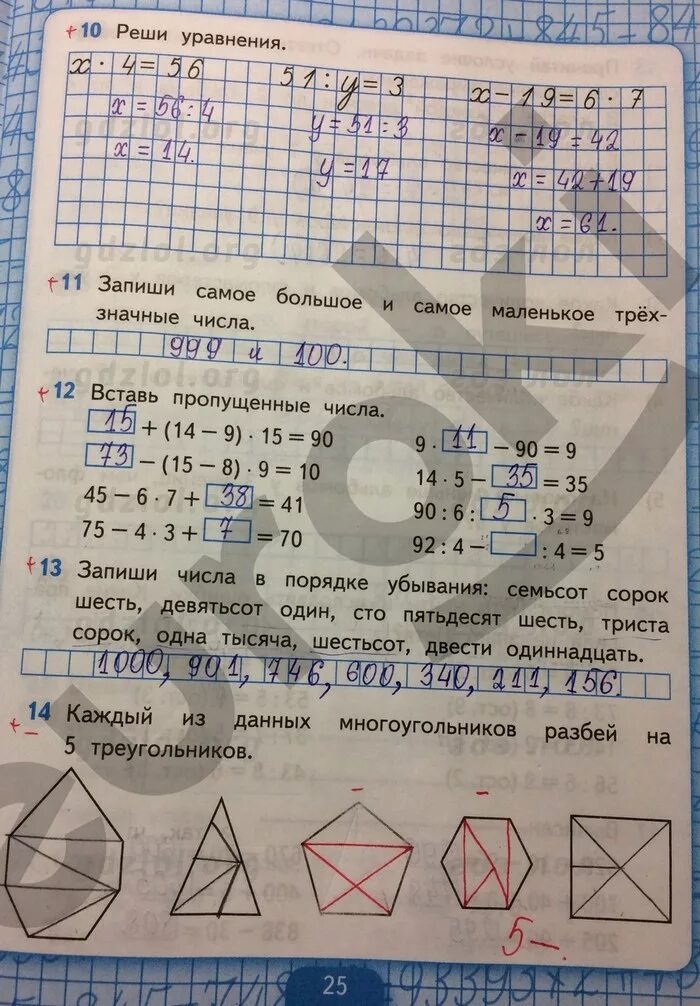 +10 Реши уравнения.
x · 4 = 56 51 : y = 3 x − 19 = 6 · 7
x = 56 : 4 y = 51 : 3 x − 19 = 42
x = 14. y = 17 x = 42 + 19
x = 61.
+11 Запиши самое большое и самое маленькое трёх-
значные числа.
999 и 100.
+12 Вставь пропущенные числа.
15 + (14 − 9) · 15 = 90 9 · 11 − 90 = 9
73 − (15 − 8) · 9 = 10 14 · 5 − 35 = 35
45 − 6 · 7 + 38 = 41 90 : 6 : 5 · 3 = 9
75 − 4 · 3 + 7 = 70 92 : 4 − : 4 = 5
+13 Запиши числа в порядке убывания: семьсот сорок
шесть, девятьсот один, сто пятьдесят шесть, триста
сорок, одна тысяча, шестьсот, двести одиннадцать.
1000, 901, 746, 600, 340, 211, 156.
+− 14 Каждый из данных многоугольников разбей на
5 треугольников.
− −
5−.
25
gdzlol.org
euroki